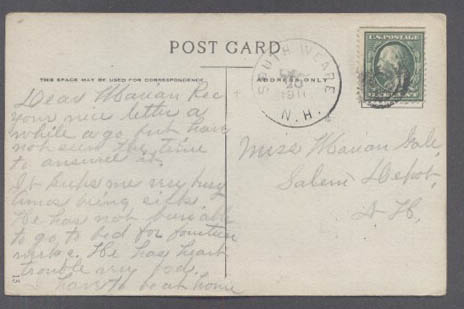 POST CARD
THIS SPACE MAY BE USED FOR CORRESPONDENCE
ADDRESS ONLY
SOUTH WEARE
20
1911
N.H.
U.S. POSTAGE
Dear Marian Rec
your nice letter a
while a go but have
not seen the time
to answer it.
It keeps me very busy
being sick.
He has not been able
to go to bed for fourteen
weeks. He has heart
trouble very bad.
I have to be at home
Miss Marian Gale,
Salem Depot,
N H.
13